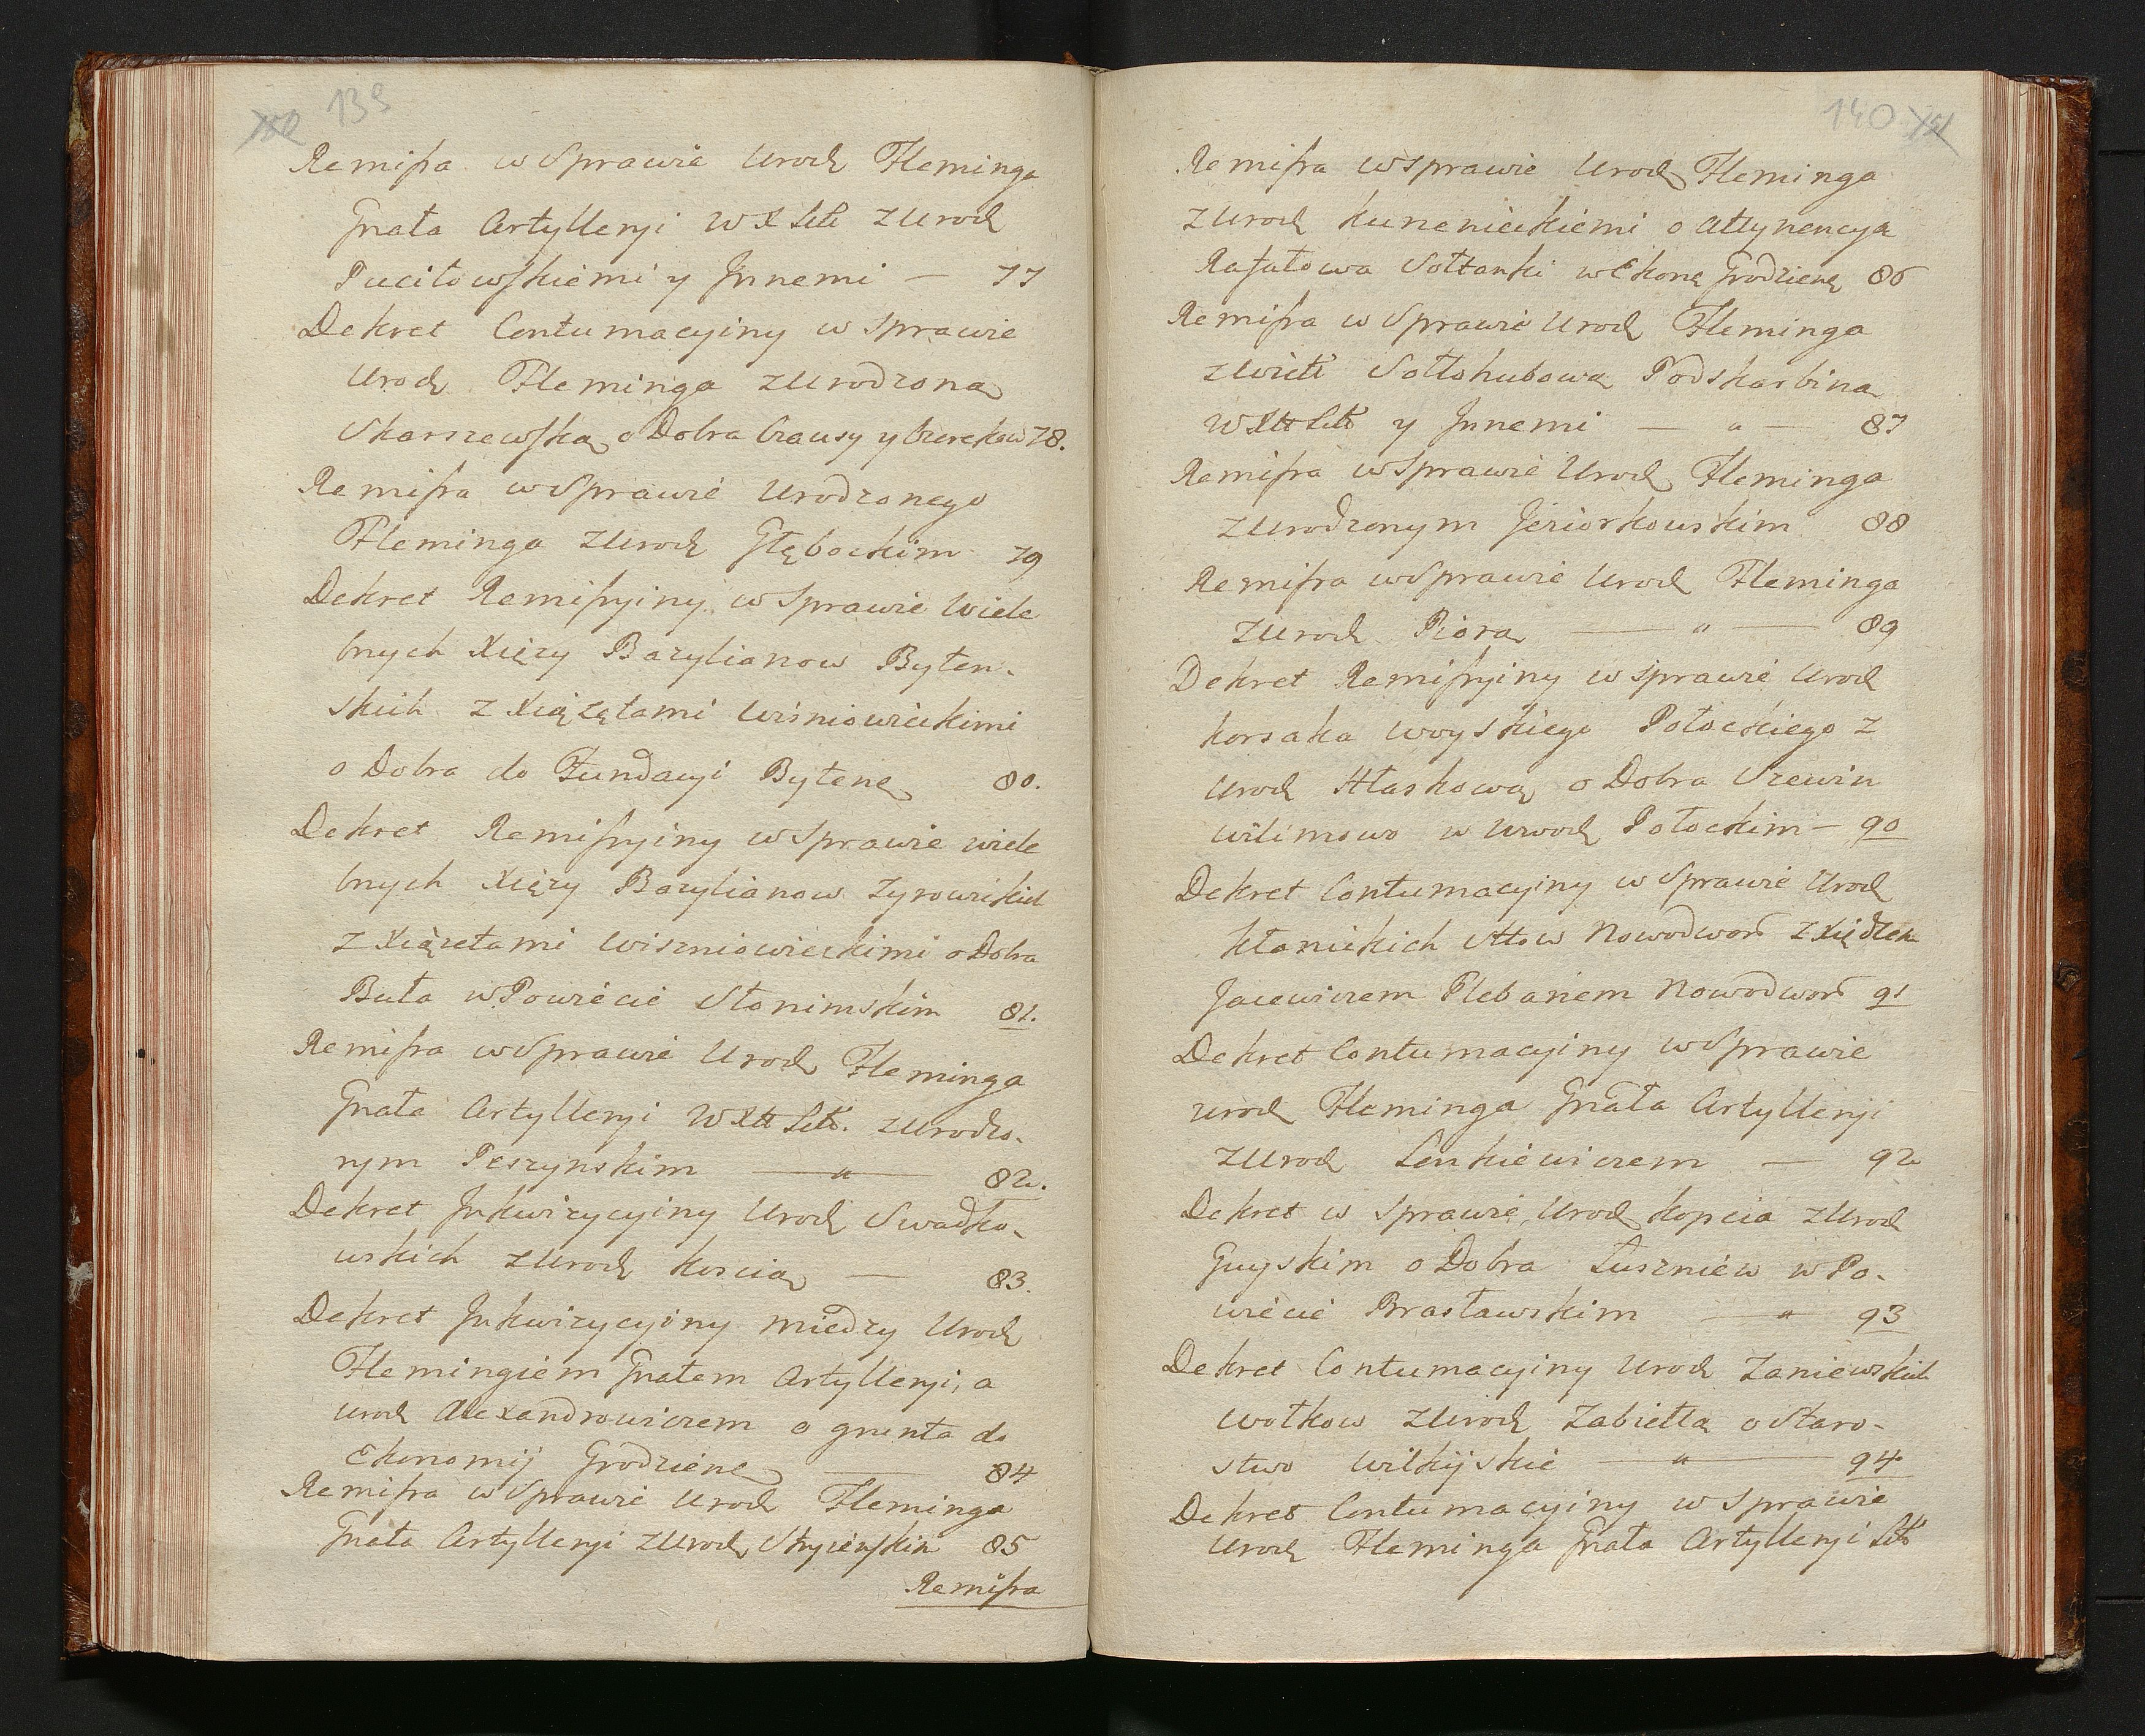 139
Remissa w Sprawie Urod Fleminga
Gnała Artylleryi W X Litt z Urod
Puciłowskiemi y Innemi — 77
Dekret Contumacyiny w Sprawie
Urod Fleminga z Urodzoną
Skarszewską o Dobra Czausy y 78.
Remissa w Sprawie Urodzonego
Fleminga z Urod Głębockim 79
Dekret Remissyiny w Sprawie Wiele
bnych Xięży Bazylianow Byten-
skich z Xiążętami Wiśniowieckimi
o Dobra do Fundacyi Byteną 80.
Dekret Remissyiny w Sprawie wiele
bnych Xięży Bazylianow Zyrowickich
z Xiążetami Wiszniowieckimi o Dobra
Buła w Powiecie Słonimskim 81.
Remissa w Sprawie Urod Fleminga
Gnała Artylleryi W X Litt. z Urodzo-
nym Peszynskim — " — 82.
Dekret Inkwizycyiny Urod Swadko-
wskich z Urod Koscią — 83.
Dekret Inkwizycyiny miedzy Urod
Flemingiem Gnałem Artylleryi, a
Urod Alexandrowiczem o grunta do
Ekonomij Grodzieńą — 84
Remissa w Sprawie Urod Fleminga
Gnała Artylleryi z Urod 85
Remissa
140
Remissa w Sprawie Urod Fleminga
z Urod Kunenieckiemi o Attynencyą
Rafałowa Sołtanki w Ekoną Grodzieną 86
Remissa w Sprawie Urod Fleminga
z Wiel Sołłohubową Podskarbiną
W X Litt y Innemi — " — 87
Remissa w Sprawie Urod Fleminga
z Urodzonym Jeziorkowskim 88
Remissa w Sprawie Urod Fleminga
z Urod Piorą — " — 89
Dekret Remissyiny w Sprawie Urod
Korsaka Woyskiego Połockiego z
Urod Hłaskową o Dobra Szewin
Wilimowo w Urod Połockim — 90
Dekret Contumacyiny w Sprawie Urod
Kłanickich Sttow Nowodwor z Xiędzem
Jacewiczem Plebanem Nowodwor 91
Dekret Contumacyiny w Sprawie
Urod Fleminga Gnała Artylleryi
z Urod Lenkiewiczem — 92
Dekret w Sprawie Urod Kopcia z Urod
Guyskim o Dobra Łuszniew w Po-
wiecie Brasławskim — " — 93
Dekret Contumacyiny Urod Zaniewskich
Wołkow z Urod Zabiełłą o Staro-
stwo Wilkijskie — " — 94
Dekret Contumacyiny w Sprawie
Urod Fleminga Gnała Artylleryi Litt